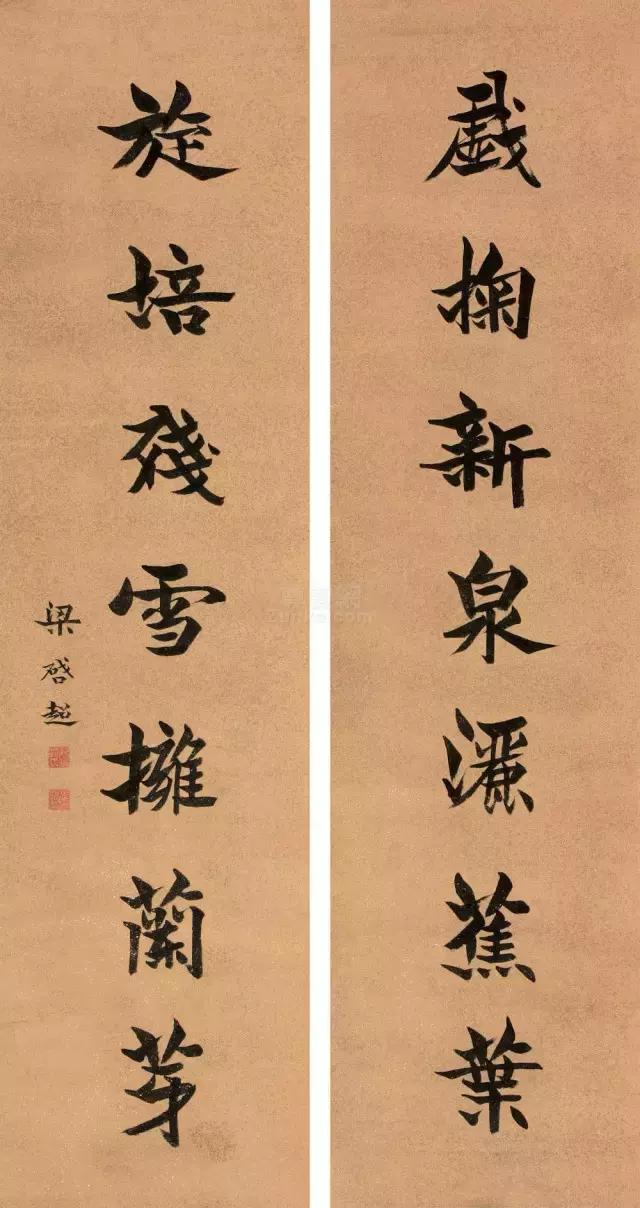 戲掬新泉灑蕉葉
旋培殘雪擁蘭芽
梁啓超